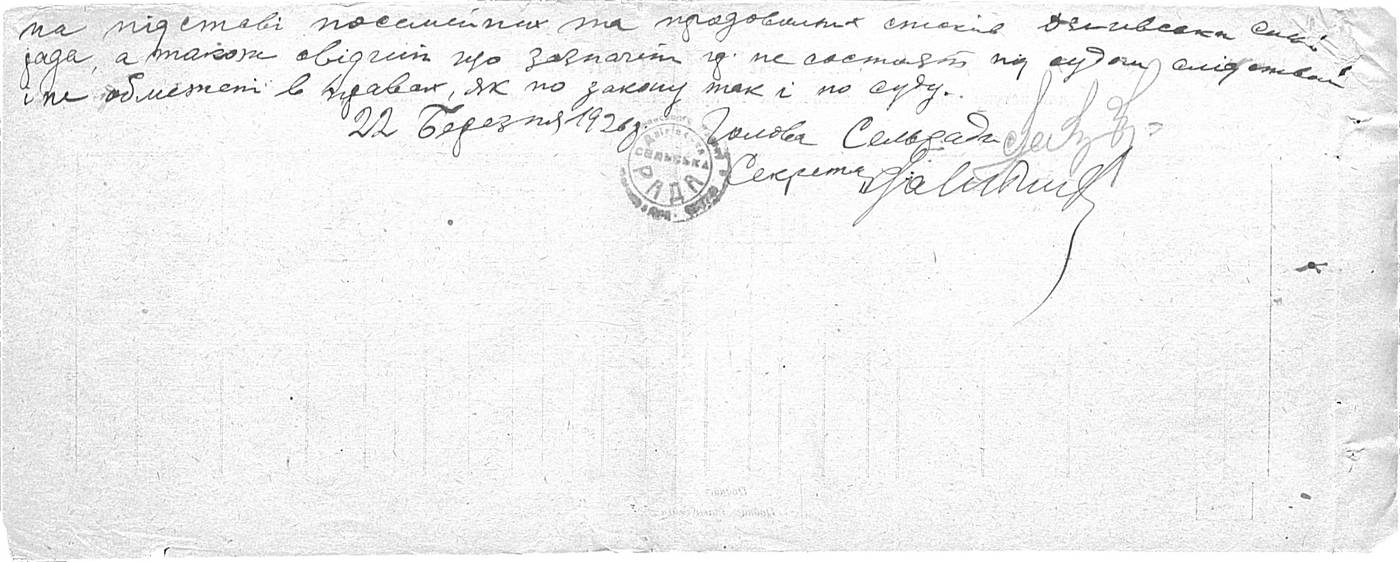 на підставі посемейних та продовольчих списків сель
рада, а також свідчить що зазначені гр. не состоять під судом слідством
і не обмежені в правах, як по закону так і по суду.
22 Березня 1926 р. Голова Сельради
СЕЛЬСЬКА
РАДА
Секретар